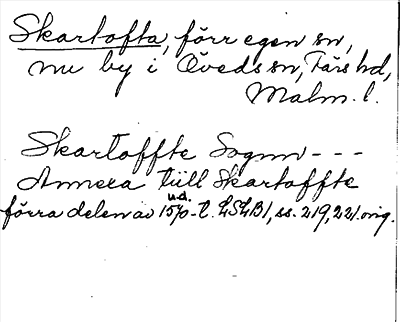 Skartofta, förr egen sn,
nu by i Öveds sn, Färs hd,
Malm. l.
Skartoffte Sognn - - -
Annexa tiill Skartoffte
förra delen av 1570-t. LSLB1, ss. 219, 221. orig.
u.d.